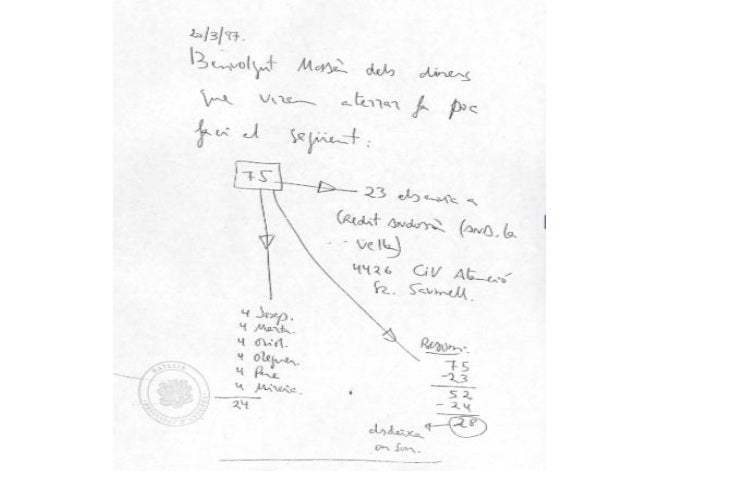 20/3/97.
Benvolgut Mossèn dels diners
que vàrem aterrar fa poc
faci el següent:
75
23 els envia a
Credit Andorrà (And. la
Vella)
4426 CIV Atenció
Sr. Saumell.
4 Josep.
4 Marta.
4 Oriol.
4 Oleguer.
4 Pere
4 Mireia.
24
Resum:
75
-23
52
- 24
28
els deixa
on son.